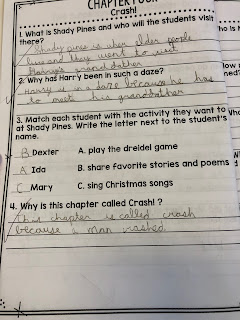 CHAPTER FOUR
Crash!
1. What is Shady Pines and who will the students visit
there?
Shady pines is wher older people
live and they went to visit
Harry's grandfather
2. Why has Harry been in such a daze?
Harry is in a daze because he has
to meet his grandfather
3. Match each student with the activity they want to
at Shady Pines. Write the letter next to the student's
name.
B Dexter A. play the dreidel game
A Ida B. share favorite stories and poems
C Mary C. sing Christmas songs
4. Why is this chapter called Crash! ?
This chapter is called crash
because a man crashed